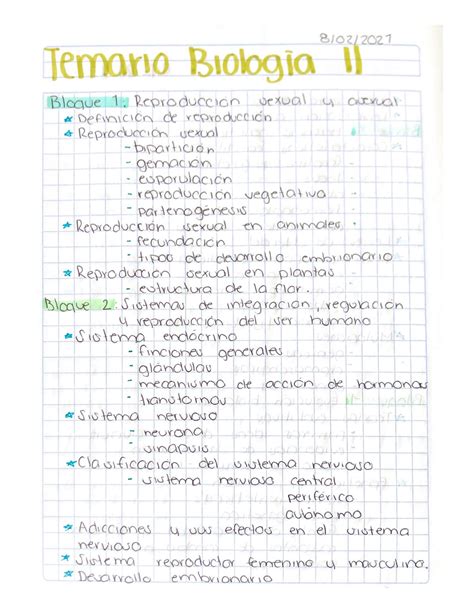 8/02/2021
Temario Biología II
Bloque 1. Reproducción sexual y asexual
* Definición de reproducción
* Reproducción sexual
- bipartición
- gemación
- esporulación
- reproducción vegetativa
- partenogénesis
* Reproducción sexual en animales
- fecundación
- tipos de desarrollo embrionario
* Reproducción sexual en plantas
- estructura de la flor.
Bloque 2. Sistemas de integración, regulación
y reproducción del ser humano
* Sistema endócrino
- finciones generales
- glándulas
- mecanismo de acción de hormonas
- transtornos
* Sistema nervioso
- neurona
- sinapsis
* Clasificación del sistema nervioso
- sistema nervioso central
periférico
autónomo
* Adicciones y sus efectos en el sistema
nervioso
* Sistema reproductor femenino y masculino.
* Desarrollo embrionario